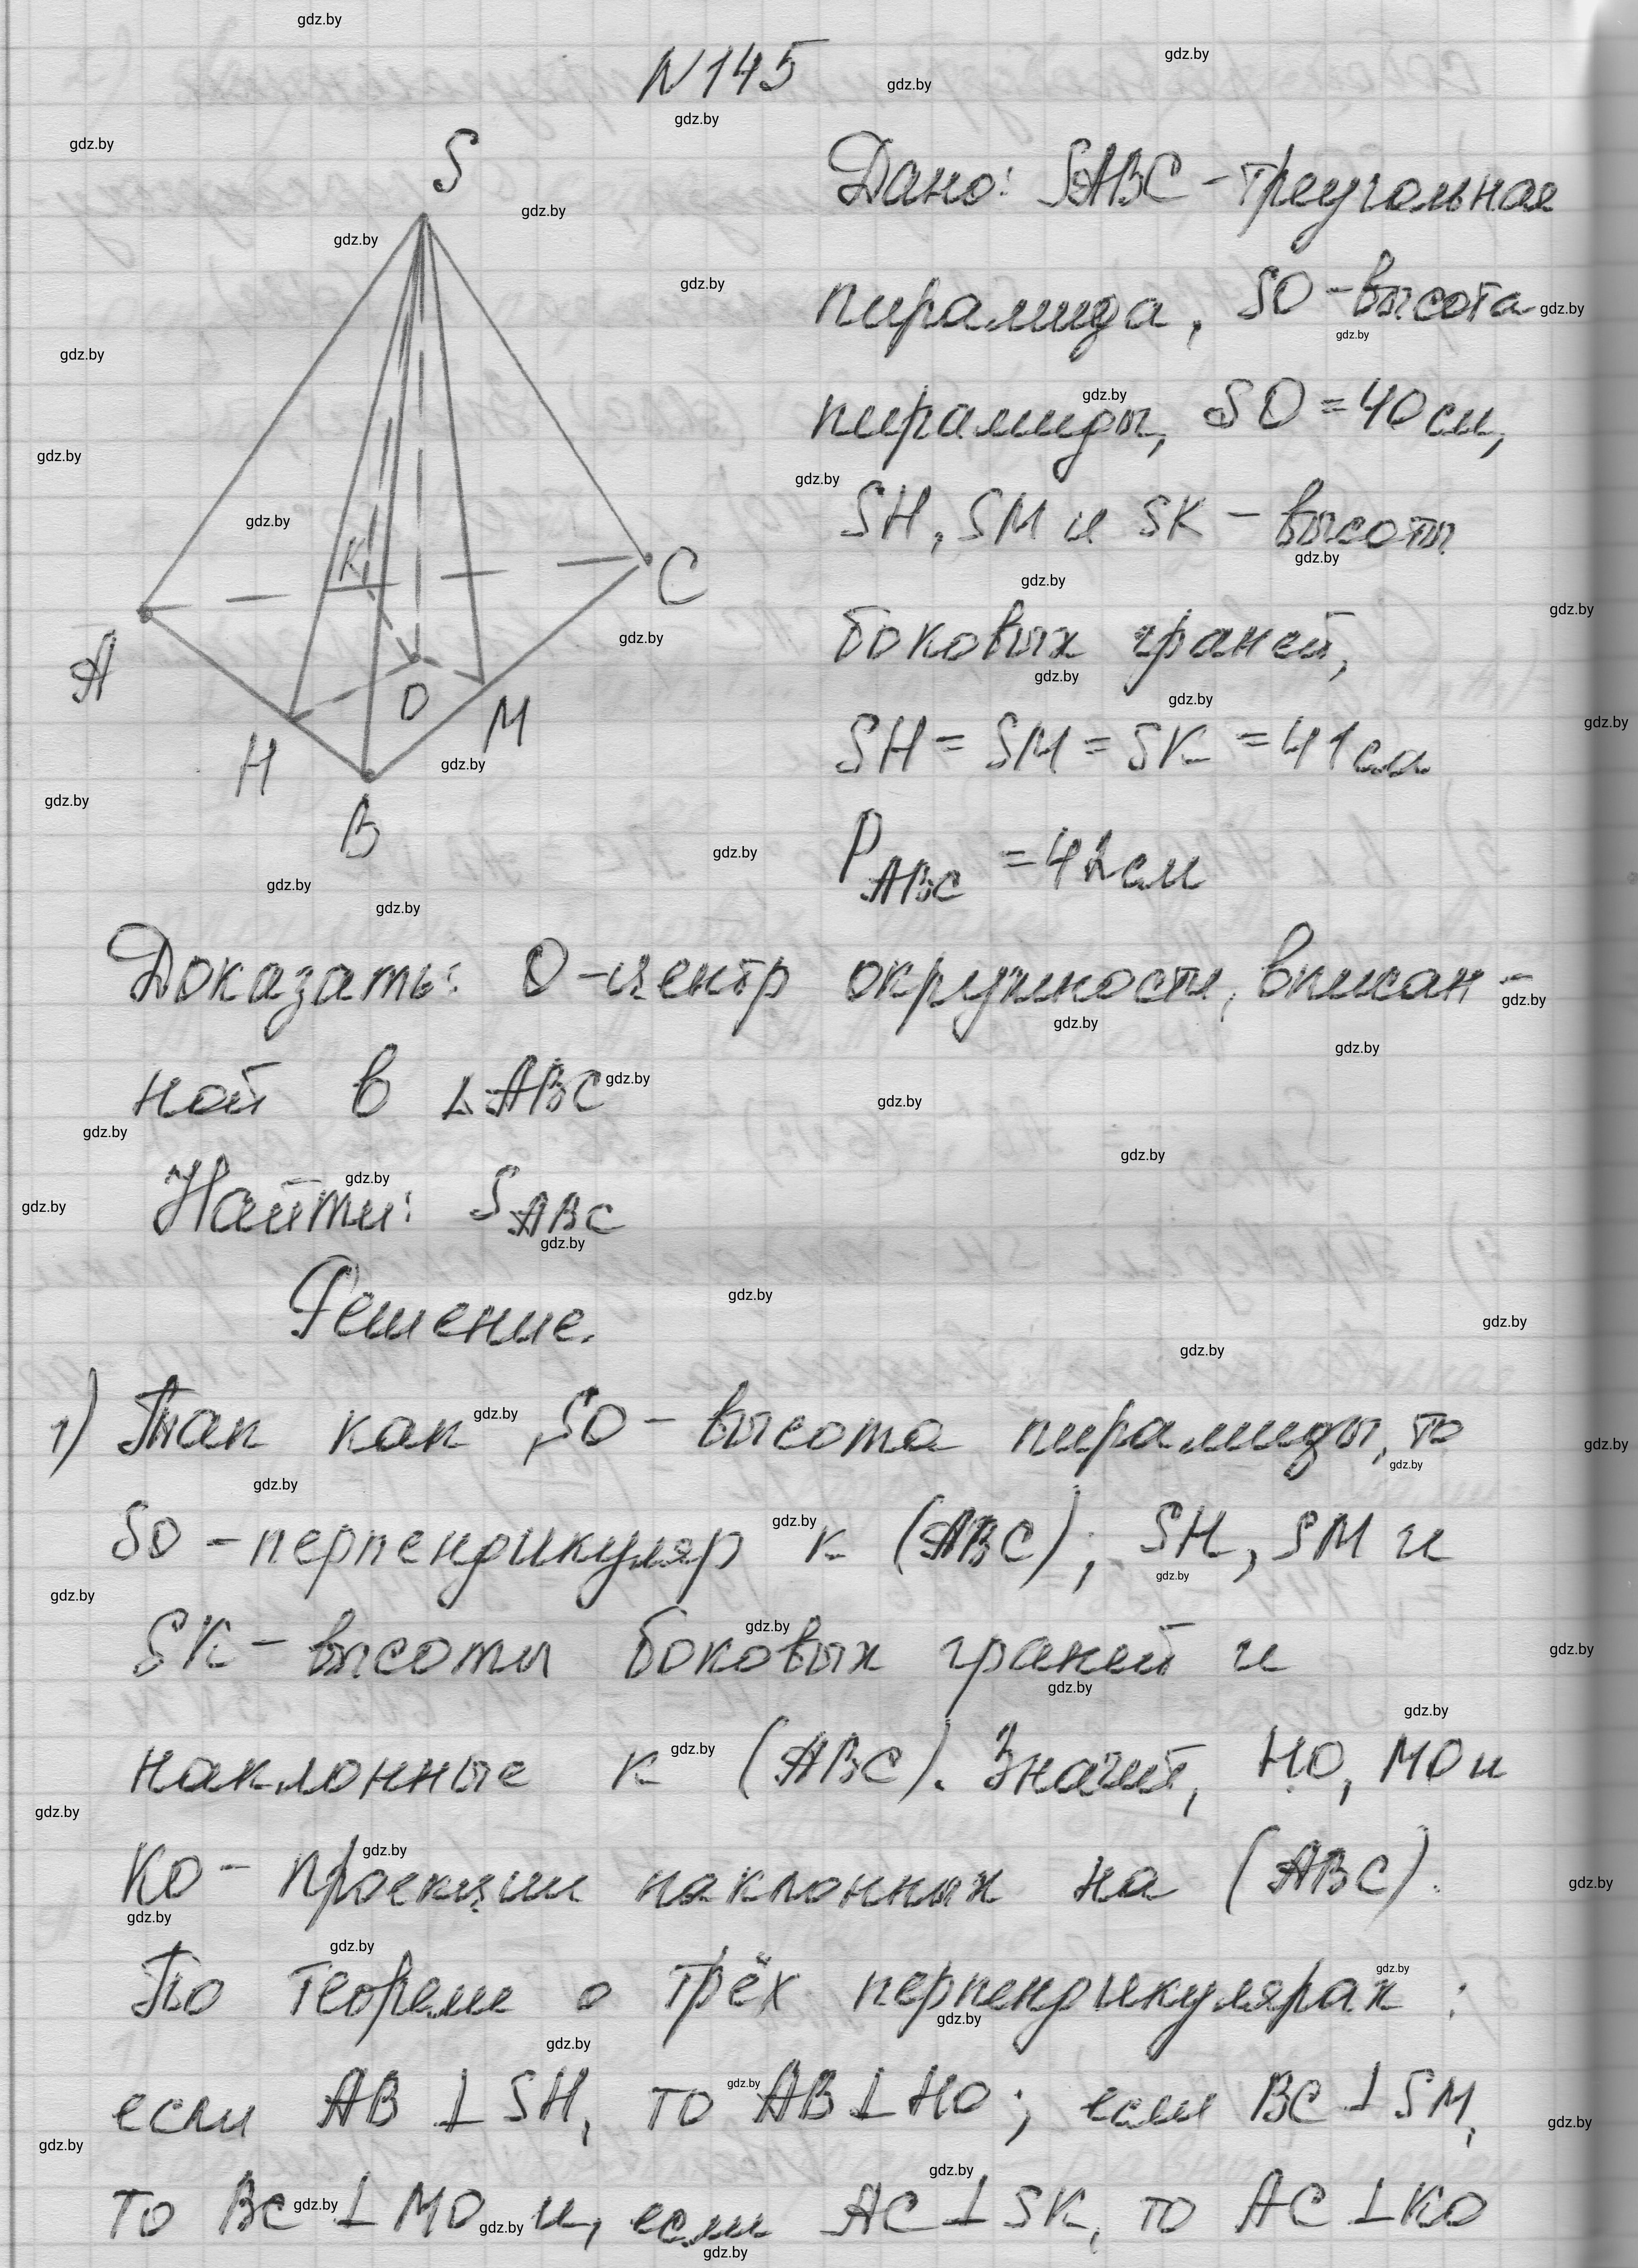 N145
S
K
C
A
O
M
H
B
Дано: SABC - треугольная
пирамида, SO - высота
пирамиды, SO = 40 см,
SH, SM и SK - высоты
боковых граней,
SH = SM = SK = 41 см
P ABC = 42 см
Доказать: O - центр окружности, вписан-
ной в △ABC
Найти: S ABC
Решение.
1) Так как SO - высота пирамиды, то
SO - перпендикуляр к (ABC); SH, SM и
SK - высоты боковых граней и
наклонные к (ABC). Значит, HO, MO и
KO - проекции наклонных на (ABC).
По теореме о трёх перпендикулярах :
если AB ⊥ SH, то AB ⊥ HO; если BC ⊥ SM,
то BC ⊥ MO и, если AC ⊥ SK, то AC ⊥ KO
gdz.by